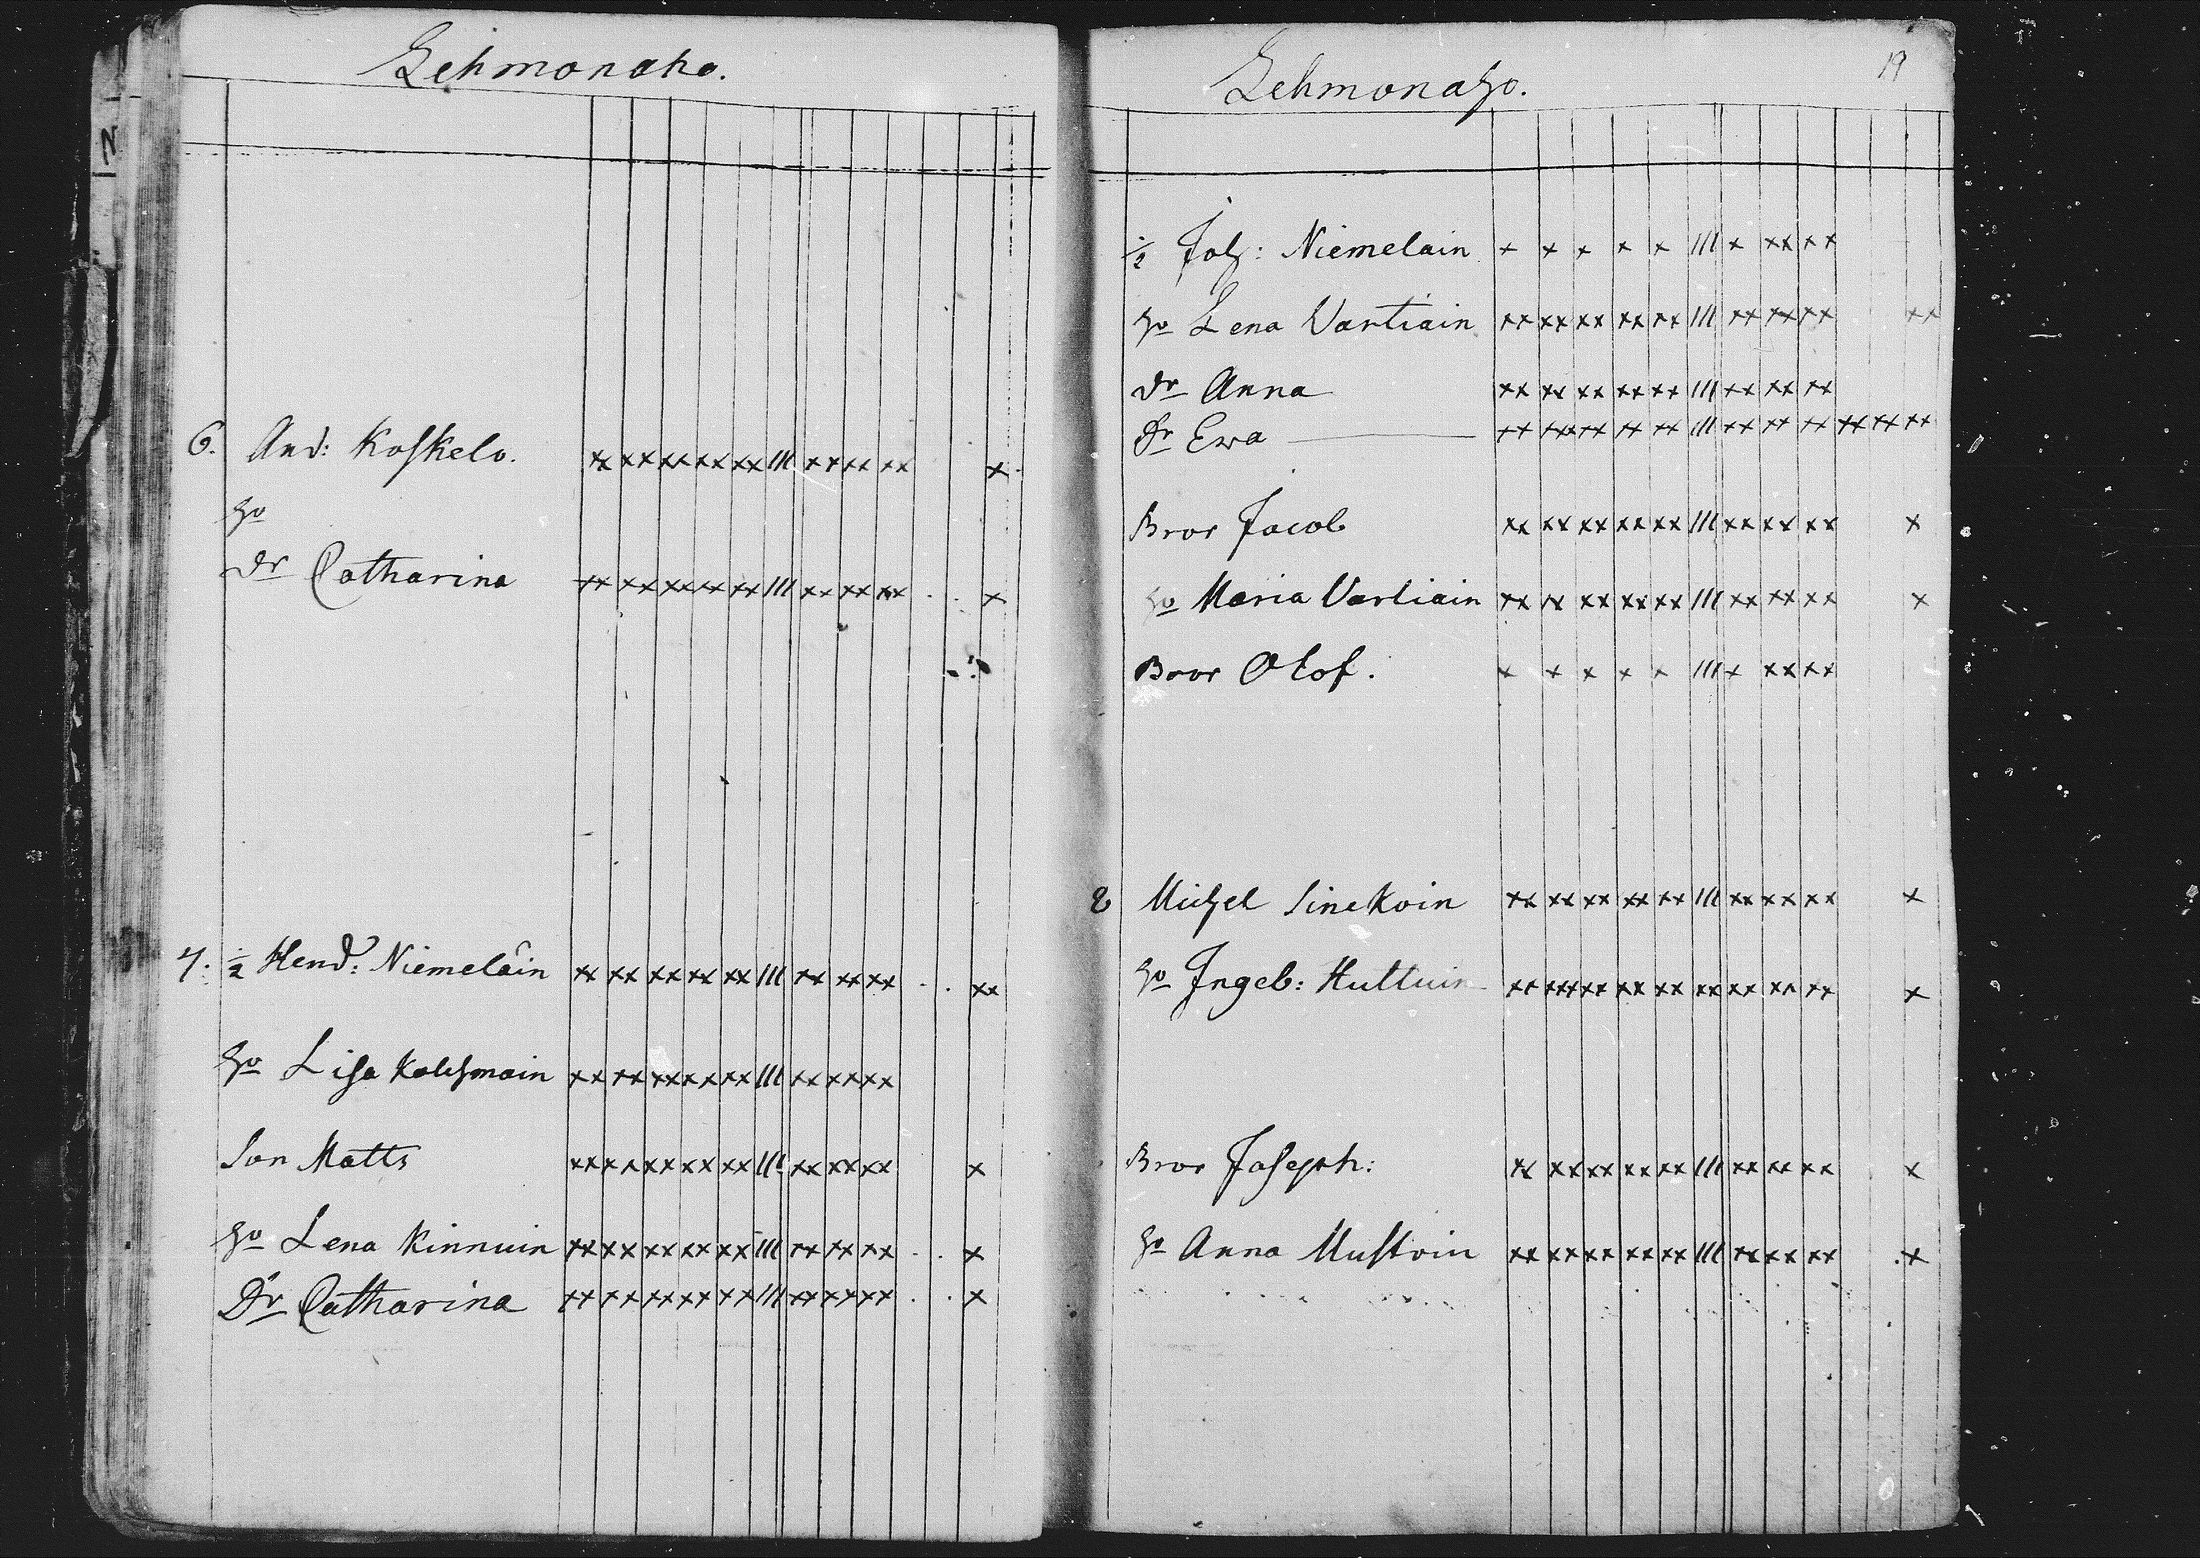 Lehmonaho.
6. And: Koskelo. xx xx xx xx xx III xx xx xx x
ho
dr Catharina xx xx xx xx xx III xx xx xx . . x
7. ½ Hend: Niemeläin xx xx xx xx xx III xx xx xx . . xx
ho Lisa Kolehmain xx xx xx xx xx III xx xx xx
Son Matts xx xx xx xx xx III xx xx xx x
ho Lena Kinnuin xx xx xx xx xx III xx xx xx . . x
Dr Catharina xx xx xx xx xx III xx xx xx . . x
Lehmonaho.
19
½ Joh: Niemelain x x x x x III x xx xx
ho Lena Vartiain xx xx xx xx xx III xx xx xx xx
dr Anna xx xx xx xx xx III xx xx xx
Dr Ewa xx xx xx xx xx III xx xx xx xx xx xx
Bror Jacob xx xx xx xx xx III xx xx xx x
ho Maria Vartiain xx xx xx xx xx III xx xx xx x
Bror Olof. x x x x x III x xx xx
8 Michel Sinekoin xx xx xx xx xx III xx xx xx x
ho Ingeb: Huttuin xx xx xx xx xx xx xx xx xx x
Bror Joseph: xx xx xx xx xx III xx xx xx x
ho Anna Mustoin xx xx xx xx xx III xx xx xx . x